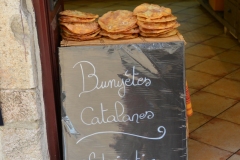 Bunyétes
Catalanes